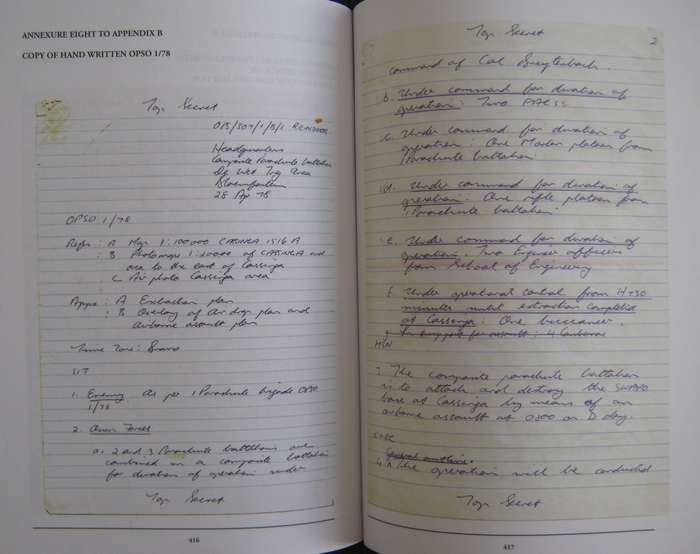 ANNEXURE EIGHT TO APPENDIX B
COPY OF HAND WRITTEN OPSO 1/78
Top Secret
Headquarters
Composite Parachute battalion
Bloemfontein
28 Ap 78
OPSO 1/78
Refs : A Map 1:100000 CASINGA 1516 A
: B Photomap 1:20000 of CASINGA and
area to the east of Cassinga
C Air photo Cassinga area
Apps : A Extraction plan
: B Overlay of Air drop plan and
airborne assault plan
Time Zone : Bravo
SIT
1. Enemy As per 1 Parachute brigade OPSO
1/78
2. Own Forces
a. 2 and 3 Parachute battalions are
combined in a composite battalion
for duration of operation under
Top Secret
416
Top Secret
2
command of Col Breytenbach.
b. Under command for duration of
operation : Two
c. Under command for duration of
operation : One Mortar platoon from
1 Parachute battalion
d. Under command for duration of
operation : One rifle platoon from
1 Parachute battalion.
e. Under command for duration of
operation. Two Engineer officers
from School of Engineering
f. Under operational control from H+30
minutes until extraction completed
at Cassinga : One buccaneer.
g. In support for assault : 4 Canberra
MSN
3 The composite parachute battalion
is to attack and destroy the SWAPO
base at Cassinga by means of an
airborne assault at 0800 on D day.
EXEC
General outline.
4. The operation will be conducted
Top Secret
417